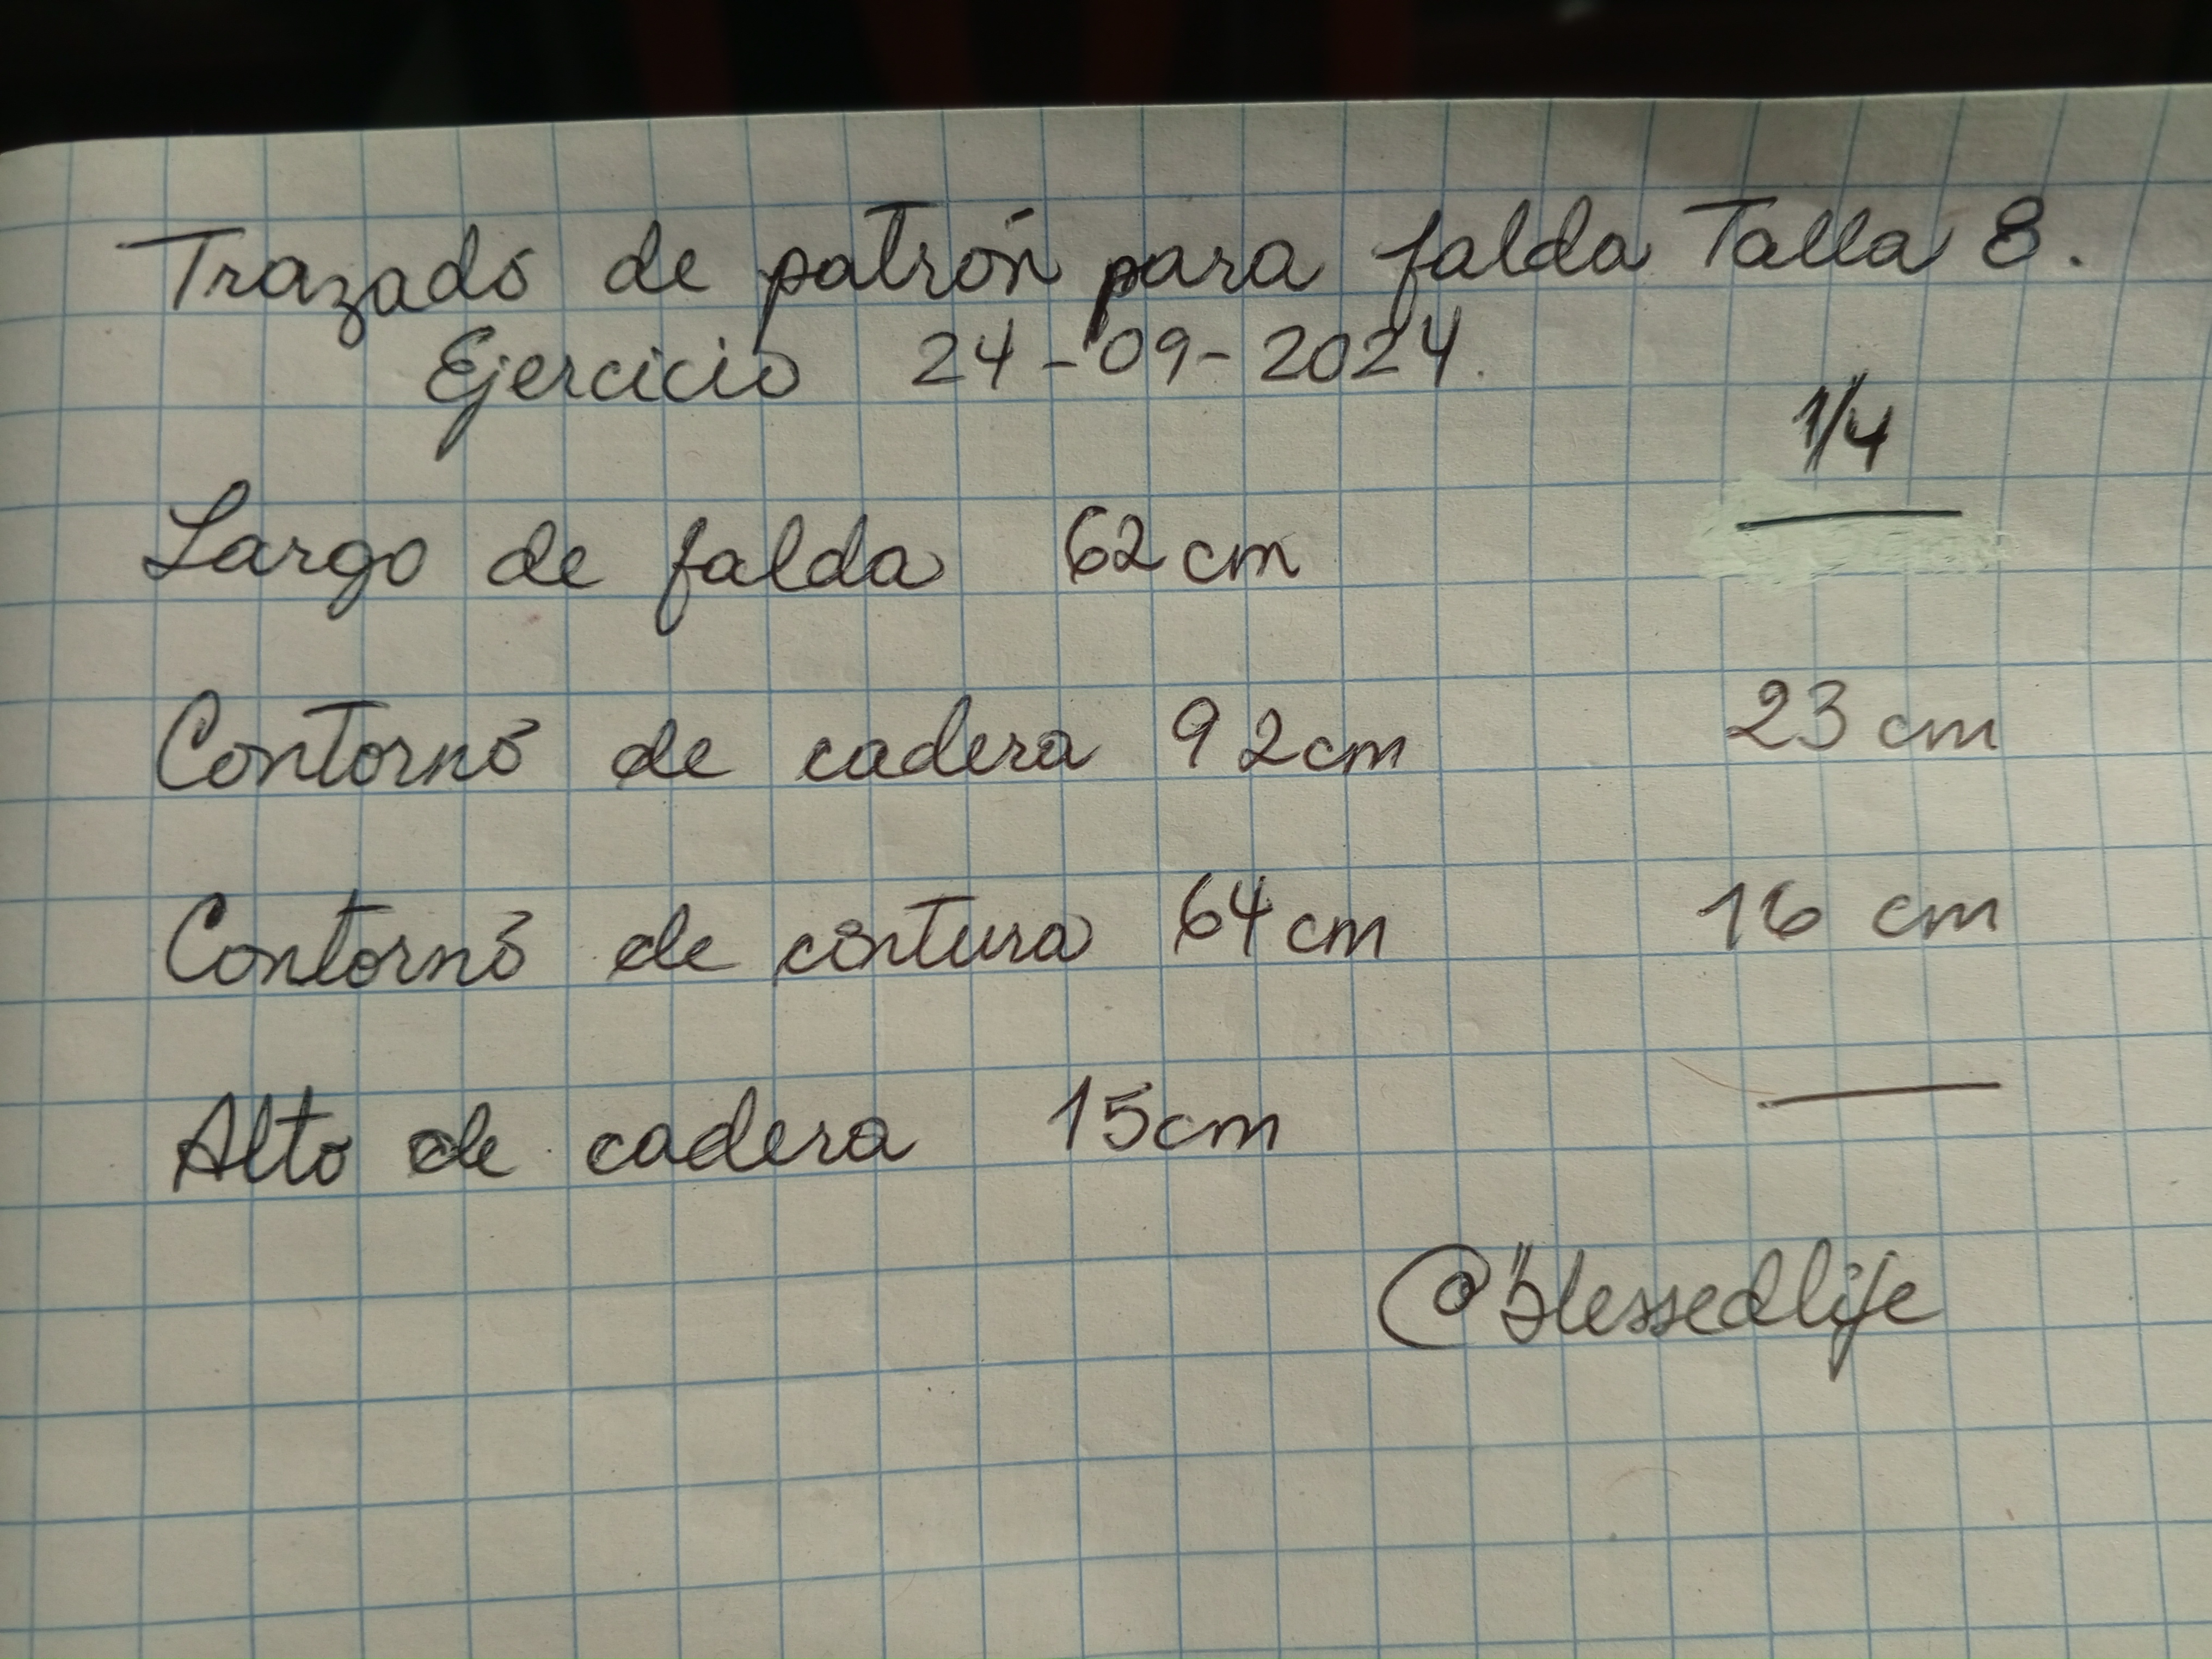 Trazado de patrón para falda Talla 8.
Ejercicio 24-09-2024.
1/4
Largo de falda 62cm —
Contorno de cadera 92cm 23 cm
Contorno de cintura 64cm 16 cm
Alto de cadera 15cm —
@blessedlife